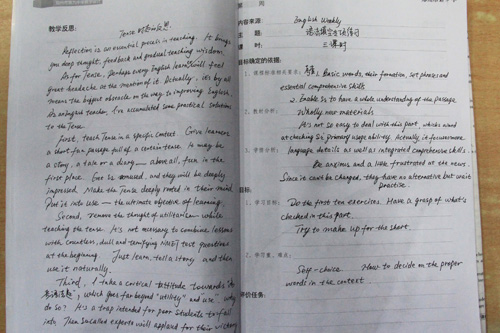 教学反思:
Tense 时态的反思
Reflection is an essential process in teaching. It brings
you deep thought, feedback and gradual teaching wisdom.
As for Tense, Perhaps every English learner will feel
great headache at the mention of it. Actually, it's by all
means the biggest obstacle on the way to improving English.
As an English teacher, I've accumulated some practical solutions
to the Tense.
First, teach Tense in a specific context. Give learners
a short fun passage full of a certain tense. It may be
a story, a tale or a diary — above all, fun, in the
first place. Ss are amused, and they will be deeply
impressed. Make the Tense deeply rooted in their mind.
Put it into use — the ultimate objective of learning.
Second, remove the thought of utilitarianism while
teaching the tense. It's not necessary to combine lessons
with countless, dull and terrifying NMET test questions
at the beginning. Just learn, tell a story and then
use it naturally.
Third, I take a critical attitude towards
which goes far beyond "utility" and use". Why
do so? It's a trap intended for poor students to fall
into. Then so called experts will applaud for their victory
第 周
内容来源: English Weekly
主 题: 语法填空专项练习
课 时: 三课时
目标确定的依据:
1、课程标准相关要求: Basic words, their formation, set phrases and
essential comprehensive skills
2. Enable Ss to have a whole understanding of the passage.
2、教材分析: Wholly new materials
It's not so easy to deal with this part which is aimed
at checking Ss' primary usage ability. Actually it focuses more
language details as well as integrated comprehensive skills.
3、学情分析:
Be anxious and a little frustrated at the news.
Since it can't be changed, they have no alternative but we'll
practise.
目标:
1、学习目标: Do the first ten exercises. Have a grasp of what's
checked in this part.
Try to make up for the short.
2、学习重、难点:
Self-choice How to decide on the proper
words in the context.
评价任务: